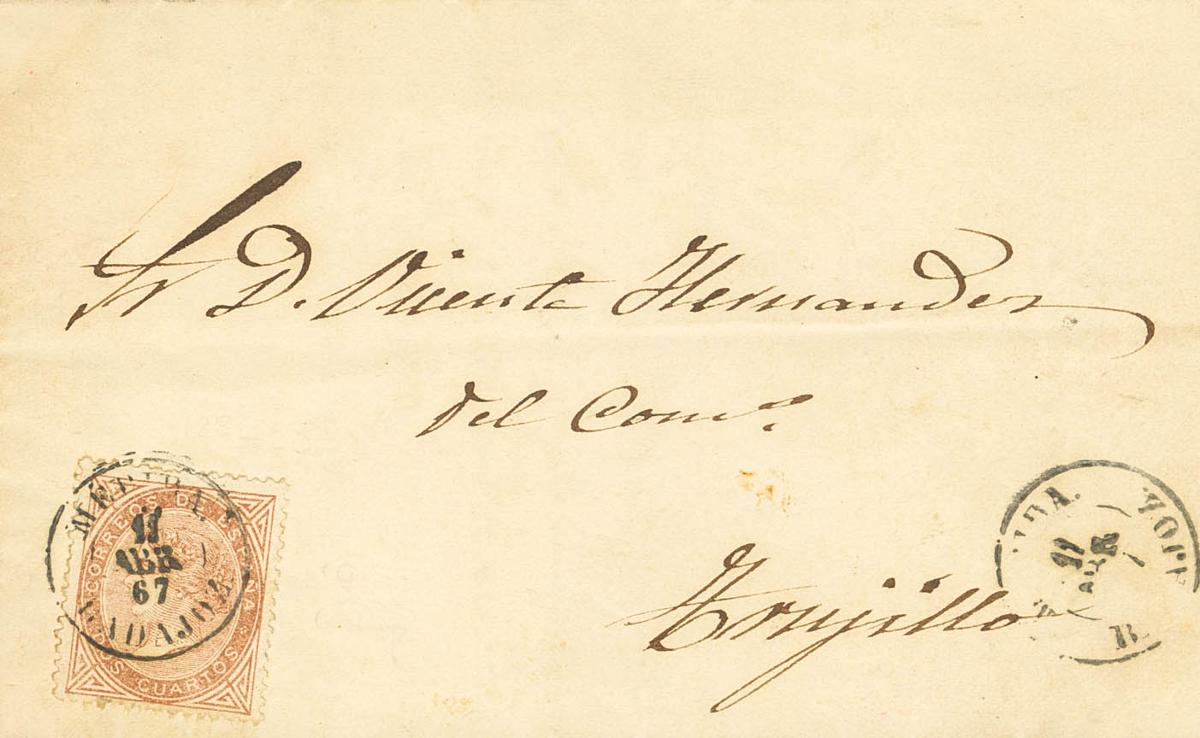 Sr D. Vicente Hernandez
del Comº
Trujillo
MÉRIDA
11
ABR
67
BADAJOZ
CORREOS DE ESPAÑA
CUARTOS
11
ABR